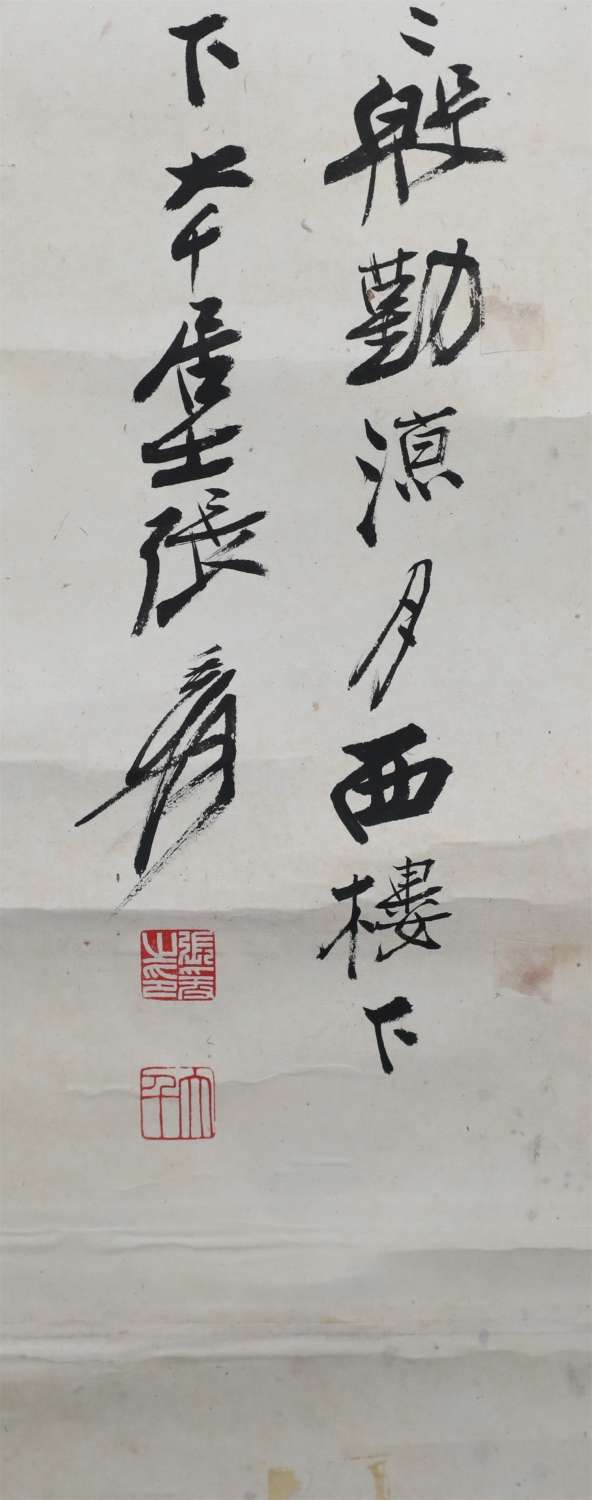 殷勤涼月西樓下
下 大千居士張爰
張爰之印
大千